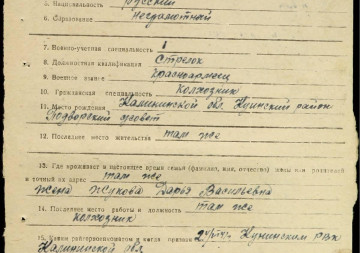 5. Национальность русский
6. Образование неграмотный
7. Военно-учетная специальность 1
8. Должностная квалификация Стрелок
9. Военное звание Красноармеец
10. Гражданская специальность Колхозник
11. Место рождения Калининской обл. Кунинский район
Подворский с/совет
12. Последнее место жительства там же
13. Где проживает в настоящее время семья (фамилия, имя, отчество) жены или родителей
и точный их адрес там же
жена Жукова Дарья Васильевна
14. Последнее место работы и должность там же
колхозник
15. Каким райгорвоенкоматом и когда призван Кунинским РВК
Калининской обл.